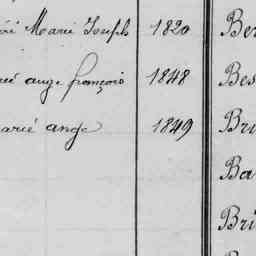 Marie Joseph 1820 Ber
ange françois 1848 Bes
marie ange 1849 Bri
Ba
Bri